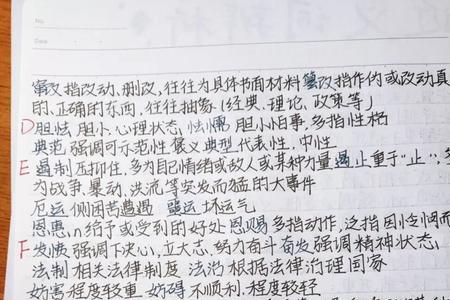 No.
Date
窜改指改动、删改,往往为具体书面材料 篡改指作伪或改动真
的、正确的东西,往往抽象(经典、理论、政策等)
D胆怯 胆小、心理状态, 怯懦 胆小怕事,多指性格
典范 强调可示范性 褒义 典型 代表性,中性
E遏制 压抑住,多为自己情绪或敌人或某种力量 遏止 重于“止”,多
为战争、暴动、洪流等突发而猛的大事件
厄运 侧困苦遭遇 坏运气
恩惠,n给予或受到的好处 恩赐 多指动作,泛指因怜悯而
F发愤 强调下决心,立大志,努力 奋发 强调精神状态,
法制 相关法律制度 法治 根据法律治理国家
妨害 程度较重 妨碍 不顺利,程度较轻